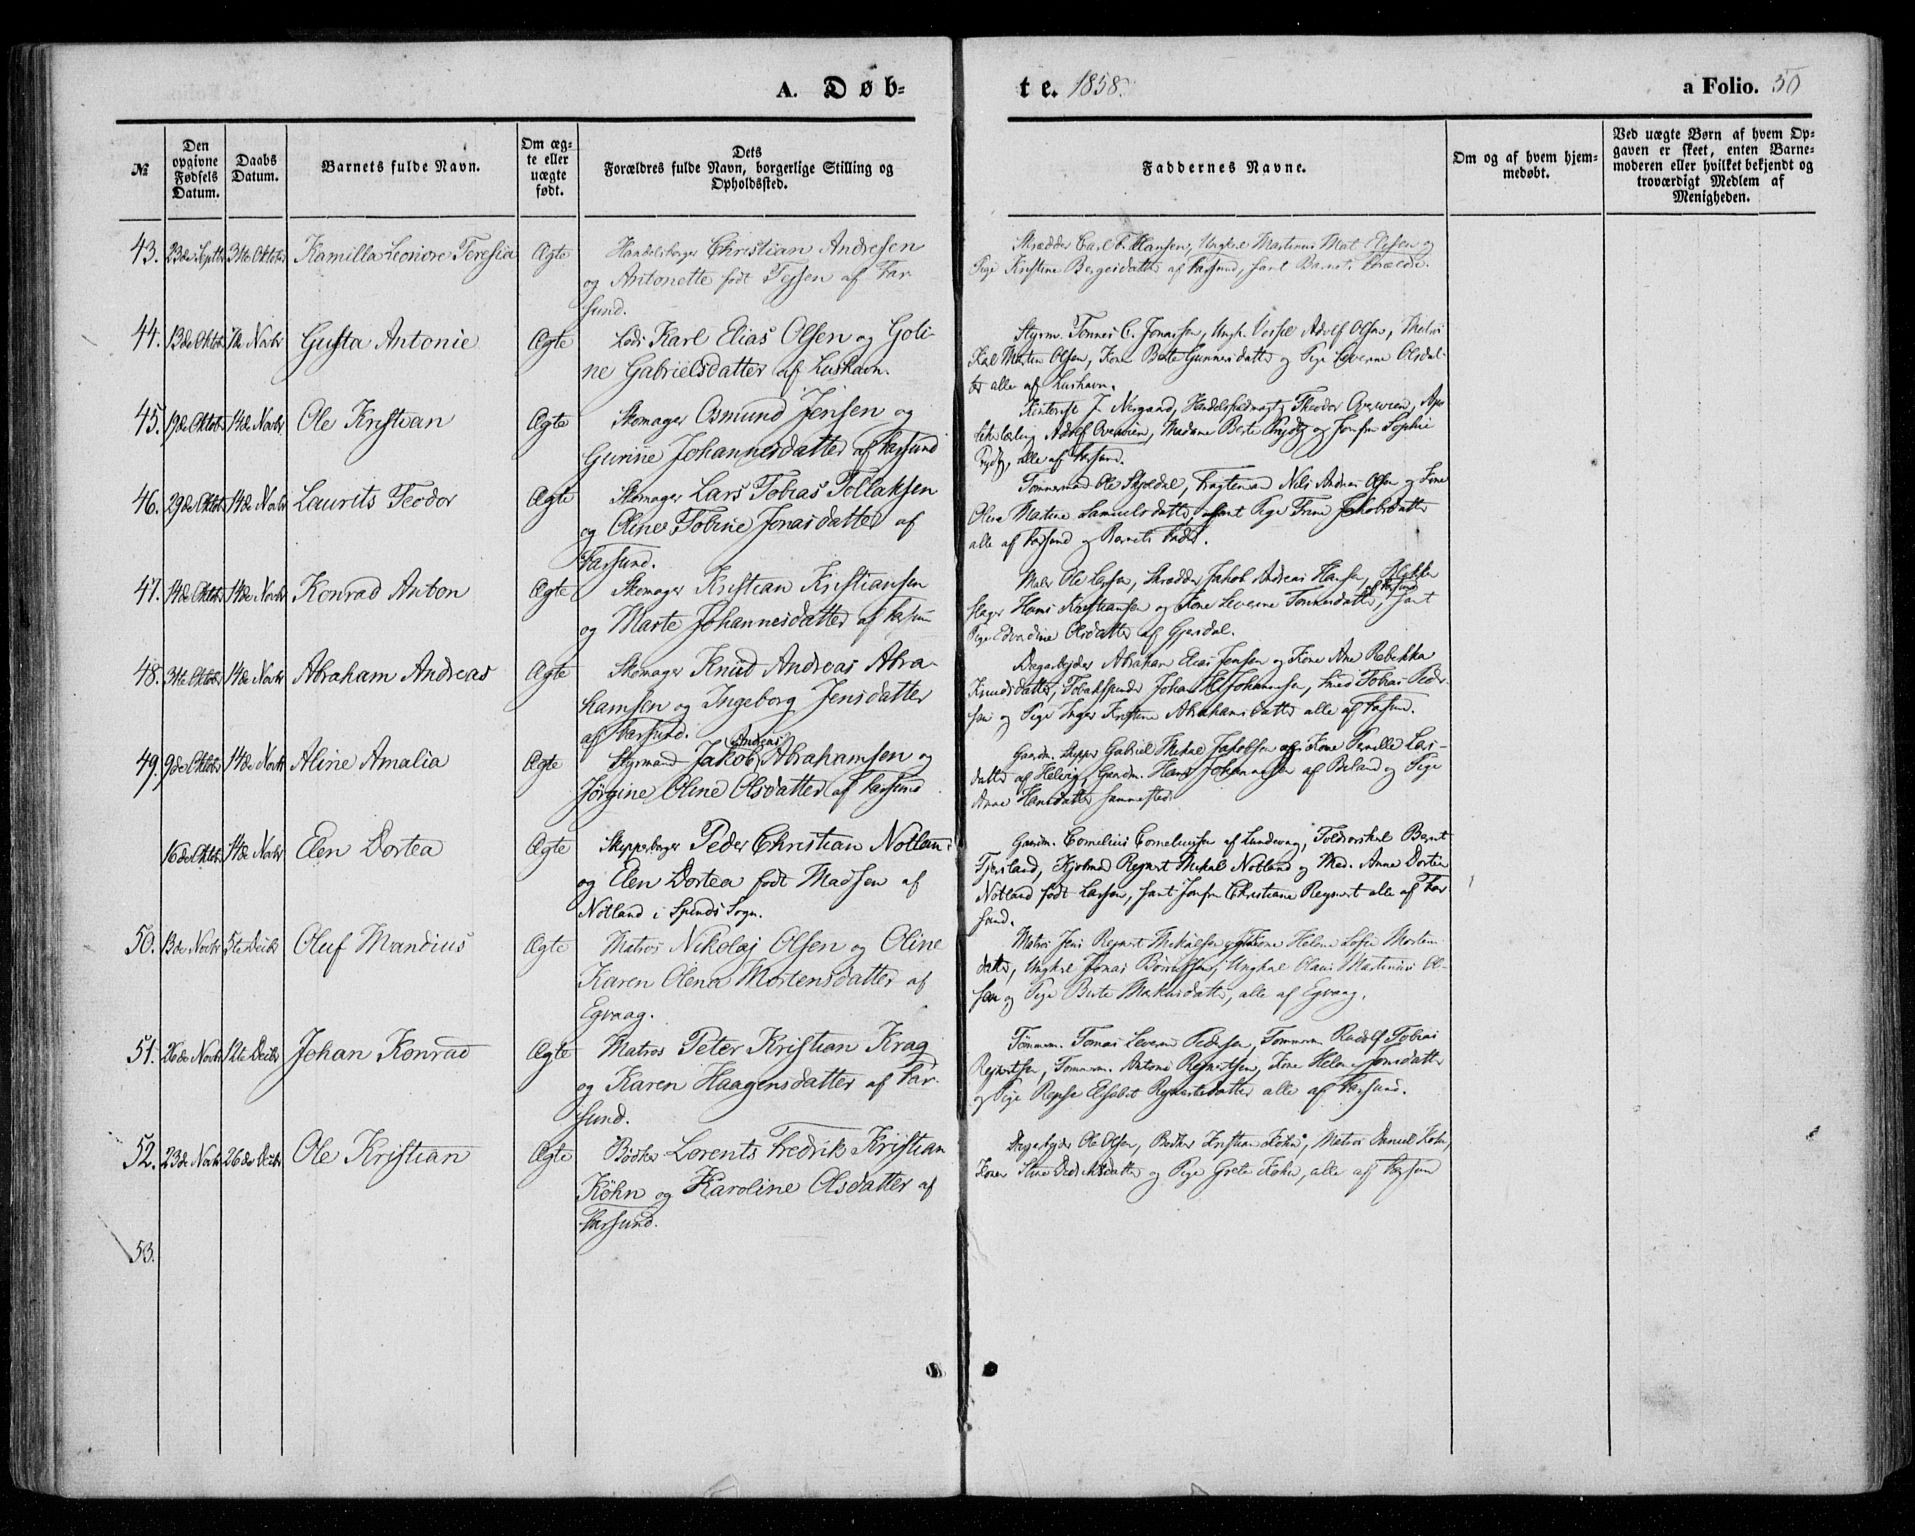 A. Døb-
te. 1858.
a Folio. 50
№
Den opgivne Fødsels Datum.
Daabs Datum.
Barnets fulde Navn.
Om ægte eller uægte født.
Dets Forældres fulde Navn, borgerlige Stilling og Opholdssted.
Faddernes Navne.
Om og af hvem hjemmedøbt.
Ved uægte Børn af hvem Opgaven er skeet, enten Barnemoderen eller hvilket bekjendt og troværdigt Medlem af Menigheden.
43. 23de Septb 3die Oktober Kamilla Leonore Teresia Ægte Handelsborger Christian Andresen
og Antonette født Tessen af Far-
sund.
Skrædder Carl F. Hansen, Ungkal Martinus Mat. Olsen og
Pige Kristine Bergesdatter af Farsund, samt Barnets Forældre.
44. 13de Oktob 7de Novbr Gusta Antonie Ægte Lods Karl Elias Olsen og Goli-
ne Gabrielsdatter af Lushavn.
Styrm. Tønnes C. Jonassen, Ungk. Adolf Olsen, Matros
Karl Martin Olsen, Kone Berte Gunnersdatter og Pige Severine Olsdat-
ter alle af Lushavn.
45. 19de Oktob 14de Novbr Ole Kristian Ægte Skomager Osmund Jensen og
Gurine Johannesdatter af Farsund
J. Nergaard, Handelsfuldmægt. Theodor Overvien, Apo
thekerlærling Adolf Overvien, Madame Berte Prydtz og Jomfru Sophie
Prydtz, alle af Farsund.
46. 29de Oktob 14de Novbr Laurits Teodor Ægte Skomager Lars Tobias Tollaksen
og Oline Tobine Jonasdatter af
Farsund.
Tømmermand Ole Skjoldal, Fragtemand Nils Andreas Olsen og Kone
Olene Martine Samuelsdatter, samt Pige Trine Jakobsdatter
alle af Farsund og Barnets Fader.
47. 14de Oktob 14de Novbr Konrad Anton Ægte Skomager Kristian Kristiansen
og Marte Johannesdatter af Farsun
Maler Ole Larsen, Skrædder Jakob Andreas Hansen, Blikken
slager Hans Kristiansen og Kone Severine Tønnesdatter af Farsund, samt
Pige Edvardine Olsdatter af Gjesdal.
48. 31te Oktob 14de Novbr Abraham Andreas Ægte Skomager Knud Andreas Abra-
hamsen og Ingeborg Jensdatter
af Farsund.
Dagarbejder Abraham Elias Jensen og Kone Ane Rebekka
Knudsdatter, Tobakspinder Johan H. Johannesen, Smed Tobias Peder-
sen og Pige Inger Kristine Abrahamsdatter alle af Farsund.
49. 9de Oktob 14de Novbr Aline Amalia Ægte Styrmand Jakob Andreas Abrahamsen og
Jørgine Oline Olsdatter af Farsund
Gaardm. Skipper Gabriel Mekal Jakobsen og Kone Pernille Lars-
datter af Helvig, Gaardm. Hans Johannesen af Beland og Pige
Anne Hansdatter sammesteds
16de Oktob 14de Novbr Elen Dortea Ægte Skipperborger Peder Christian Notland
og Elen Dortea født Madsen af
Notland i Spinds Sogn.
Gaardm. Cornelius Corneliussen af Lundevaag, Toldrorskal Bernt
Fjersland, Kjøbmand Reinert Mekal Notland og Mad. Anne Dortea
Notland født Larsen, samt Jomfru Christiane Reinert alle af Far
sund.
50. 13de Novbr 5te Decbr Oluf Mandius Ægte Matros Nikolaj Olsen og Oline
Karen Olena Mortensdatter af
Egvaag.
Matros Jens Reinert Mekalsen og Kone Helene Sofie Mortens
datter, Ungkal Jonas Børresen, Ungkal Olaus Martinius Ol-
sen og Pige Berte Markusdatter, alle af Egvaag.
51. 26de Novbr 12te Decbr Johan Konrad Ægte Matros Peter Kristian Krag
og Karen Haagensdatter af Far-
sund.
Tømmerm. Tomas Severin Pedersen, Tømmerm. Rudolf Tobias
Reinertsen, Tømmerm. Antoni Reinertsen, Kone Helene Jonsdatter
og Pige Repse Elisabet Reinertsdatter alle af Farsund.
52. 23de Novbr 26de Decbr Ole Kristian Ægte Bødker Lorents Fredrik Kristian
Køhn og Karoline Olsdatter af
Farsund.
Dagarbejder Ole Olsen, Bødker Kristian Køhn, Matros Daniel Køhn,
Kone Stine Dedriksdatter og Pige Grete Køhn, alle af Farsund
53.